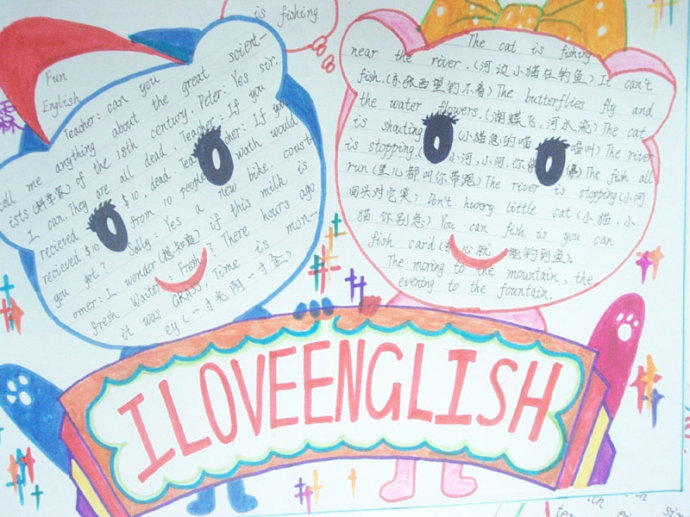 is fishing
Fun
English
Teacher: can you
tell me anything about the great scient-
ists (科学家) of the 18th century. Peter: Yes sir.
I can. They are all dead. Teacher: If you
recieved $10 from 10 people
recieved $10
you get? Sally: Yes a new bike. coust-
omer: I wonder (想知道) if this milk is
fresh. Waiter: Fresh? There hours ago
it was GRASS. Time is mon-
ey (一寸光阴一寸金)
The cat is fishing
near the river. (河边小猫在钓鱼) It can't
fish. (东张西望钓不着) The butterflies fly and
the water flowers. (蝴蝶飞，河水流) The cat
is shouting (小猫急的喵喵叫) The river
is stopping. (小河，小河，你 The fish all
run (鱼儿都叫你带跑) The river is stopping (小河
回头对它笑) Don't huorry little cat (小猫，小
猫 你别急) You can fish is you can
fish card. 钓到鱼).
The moring to the mountain, the
evening to the fountain.
ILOVEENGLISH